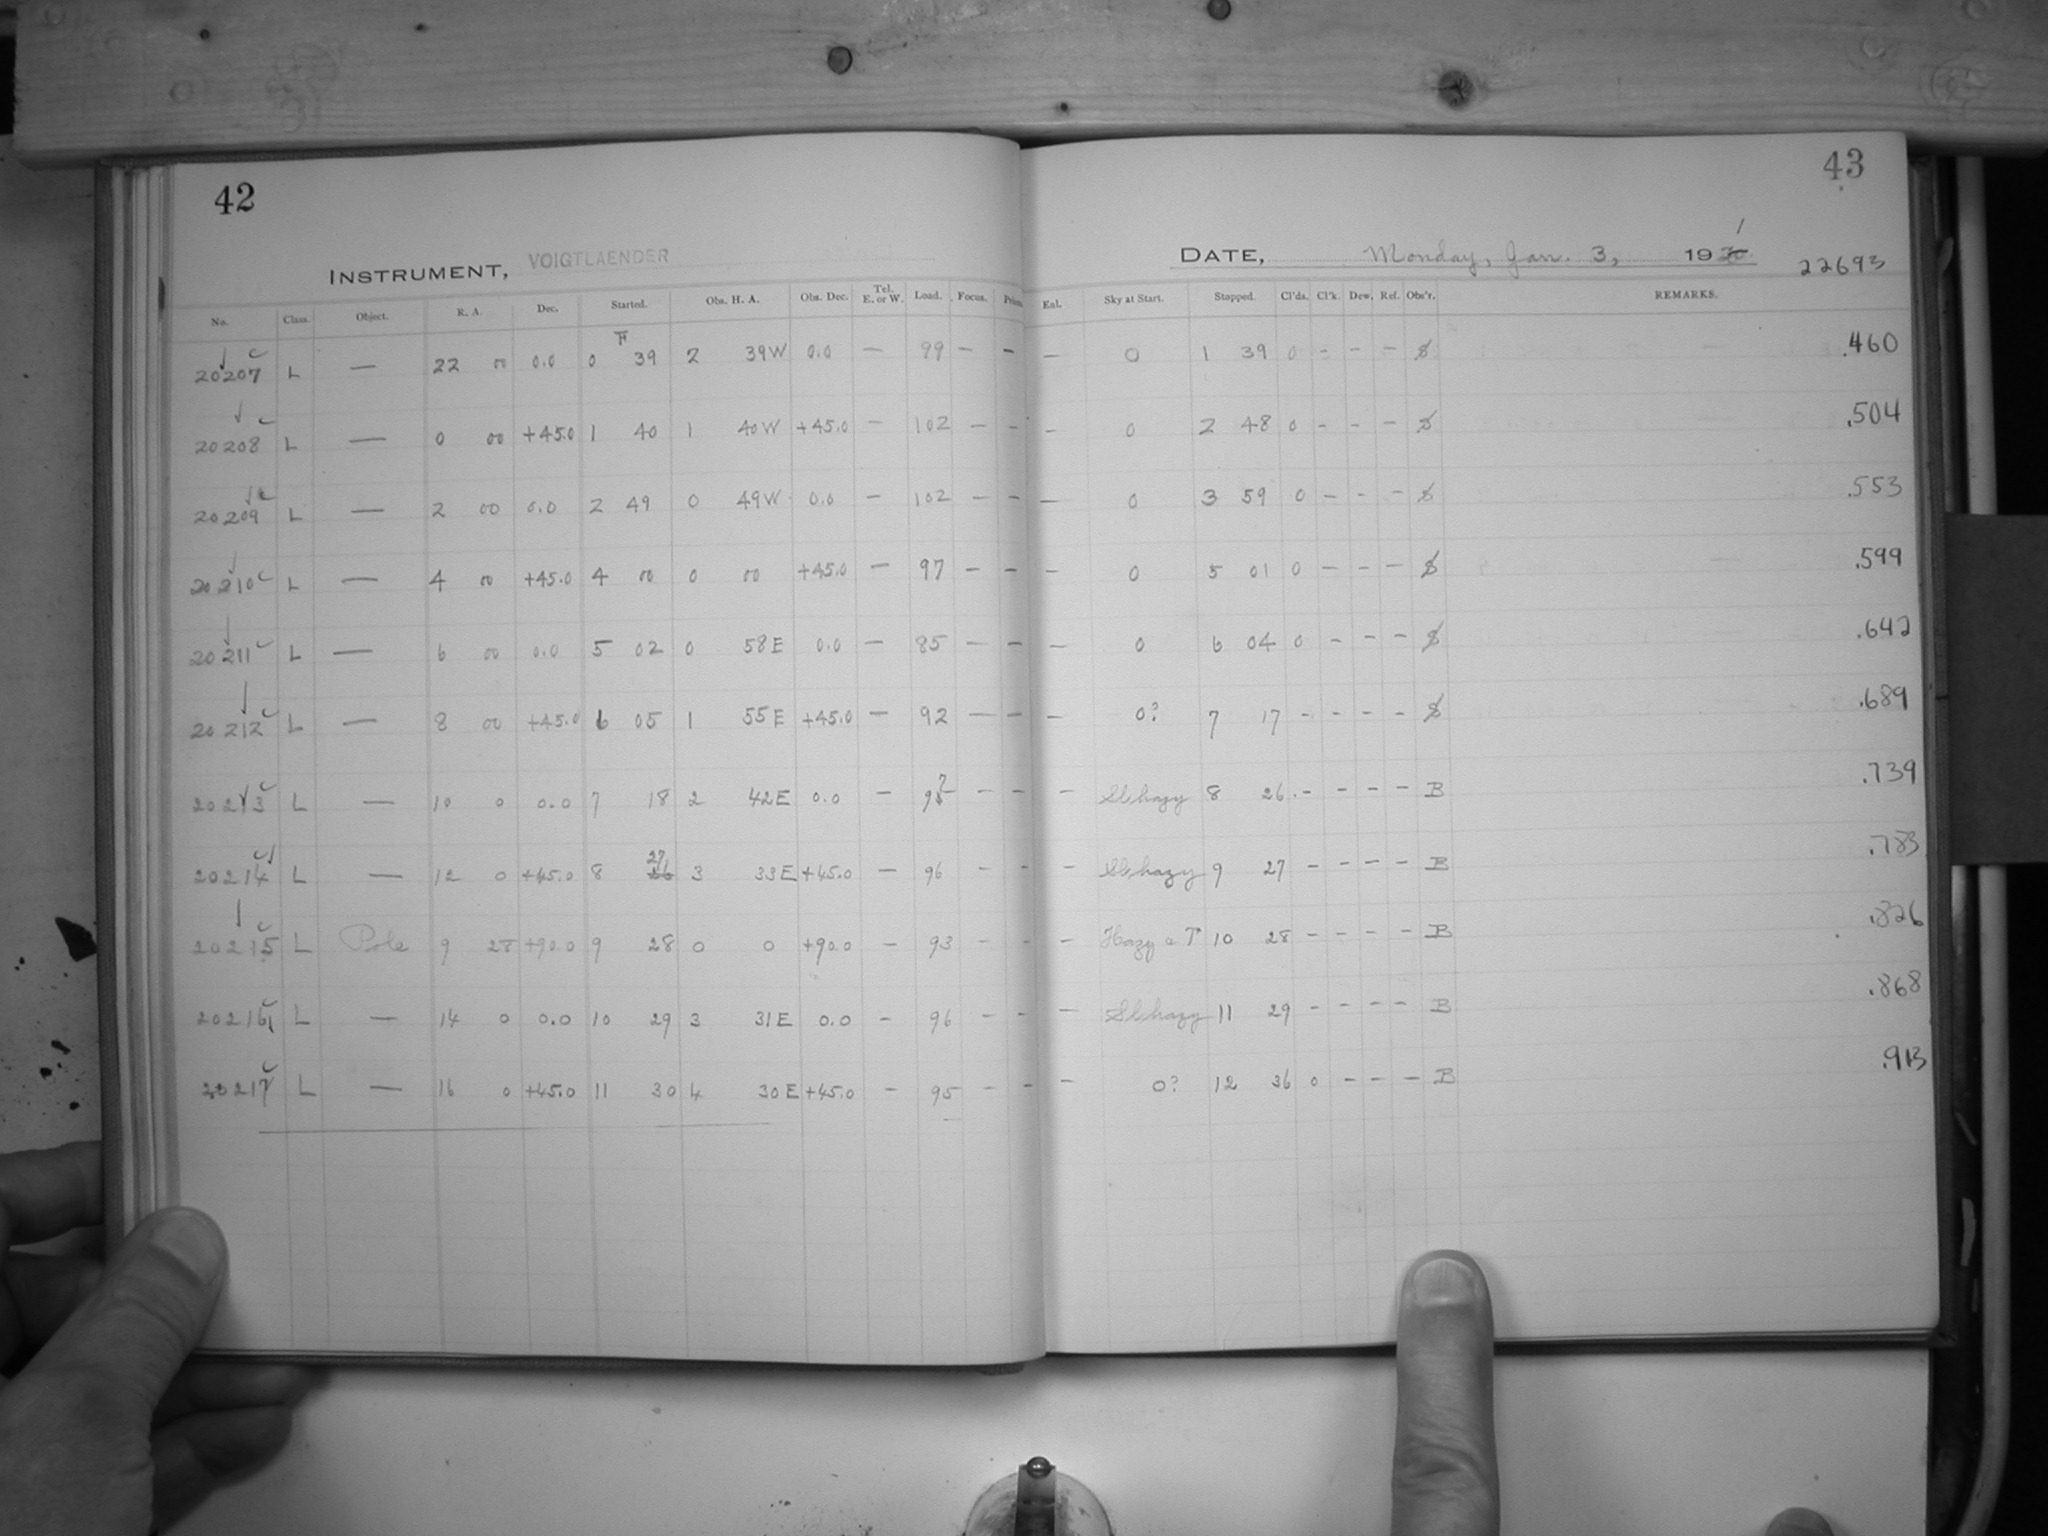 42
43
INSTRUMENT, VOIGTLAENDER
DATE, Monday, Jan. 3, 1921
22693
No. Class. Object. R. A. Dec. Started. Obs. H. A. Obs. Dec. Tel. E. or W. Load. Focus. Prisms Enl. Sky at Start. Stopped. Cl'ds. Cl'k. Dew. Ref. Obs'r. REMARKS.
20207 L — 22 00 0.0 0 39 2 39W 0.0 — 99 — — — 0 1 39 0 - - - S .460
20208 L — 0 00 +45.0 1 40 1 40W +45.0 — 102 — — — 0 2 48 0 - - - S .504
20209 L — 2 00 0.0 2 49 0 49W 0.0 — 102 — — — 0 3 59 0 - - - S .553
20210 L — 4 00 +45.0 4 00 0 00 +45.0 — 97 — — — 0 5 01 0 - - - S .599
20211 L — 6 00 0.0 5 02 0 58E 0.0 — 85 — — — 0 6 04 0 - - - S .642
20212 L — 8 00 +45.0 6 05 1 55E +45.0 — 92 — — — 0? 7 17 - - - - S .689
20213 L — 10 0 0.0 7 18 2 42E 0.0 — 97 — — — Sl. hazy 8 26 - - - - B .739
20214 L — 12 0 +45.0 8 27 3 33E +45.0 — 96 — — — Sl. hazy 9 27 - - - - B .783
20215 L Pole 9 28 +90.0 9 28 0 0 +90.0 — 93 — — — Hazy 10 28 - - - - B .826
20216 L — 14 0 0.0 10 29 3 31E 0.0 — 96 — — — Sl. hazy 11 29 - - - - B .868
20217 L — 16 0 +45.0 11 30 4 30E +45.0 — 95 — — — 0? 12 36 0 - - - B .913